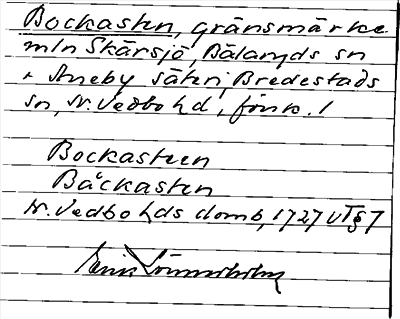 Bockasten, gränsmärke
mln Skärsjö, Bälaryds sn
+ Aneby säteri, Bredestads
sn, N. Vedbo hd, Jönk. l
Bockasteen
Båckasten
N. Vedbo hds domb, 1727 VT § 7